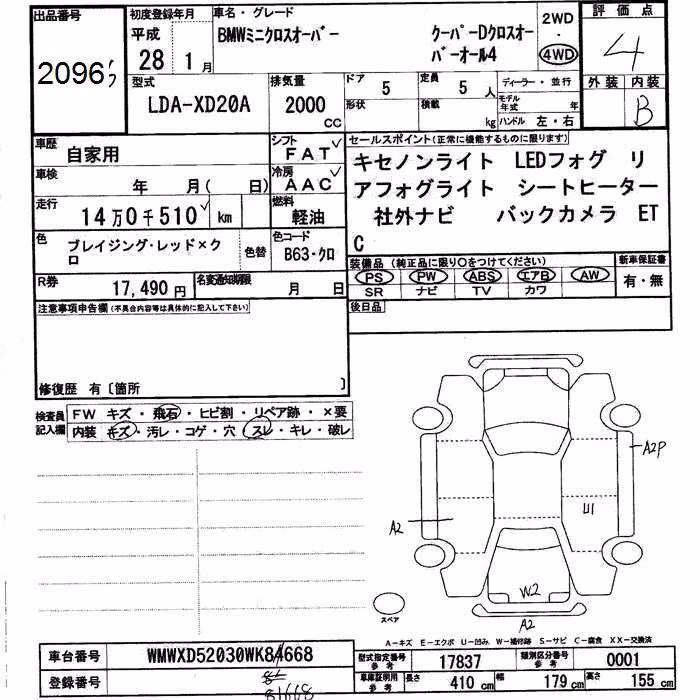 出品番号
2096
初度登録年月
平成
28 1月
車名・グレード
BMWミニクロスオーバー クーパーDクロスオー
バーオール4
2WD
・
4WD
評価点
4
外装 内装
B
型式
LDA-XD20A
排気量
2000
CC
ドア 5
定員 5 人
形状
積載 kg
ディーラー・並行
モデル年式 年
ハンドル 左・右
車歴 自家用
シフト FAT
車検 年 月( 日)
冷房 AAC
走行 14万0千510 km
燃料 軽油
色 ブレイジング・レッド×ク
ロ
色替
色コード
B63・クロ
R券 17,490 円
名変通知期限 月 日
セールスポイント(正常に機能するものに限ります)
キセノンライト LEDフォグ リ
アフォグライト シートヒーター
社外ナビ バックカメラ ET
C
装備品(純正品に限り〇をつけてください)
PS PW ABS エアB AW
SR ナビ TV カワ
新車保証書
有・無
後日品
注意事項申告欄(不具合内容等は具体的に記入して下さい)
修復歴 有〔箇所 〕
検査員
記入欄
FW キズ・飛石・ヒビ割・リペア跡・×要
内装 キズ・汚レ・コゲ・穴・スレ・キレ・破レ
A2P
U1
A2
W2
A2
スペア
A-キズ E-エクボ U-凹み W-補修跡 S-サビ C-腐食 XX-交換済
車台番号 WMWXD52030WK84668
登録番号
81668
型式指定番号
参考
17837
類別区分番号
参考
0001
車庫証明用
参考
長さ 410 cm 幅 179 cm 高さ 155 cm